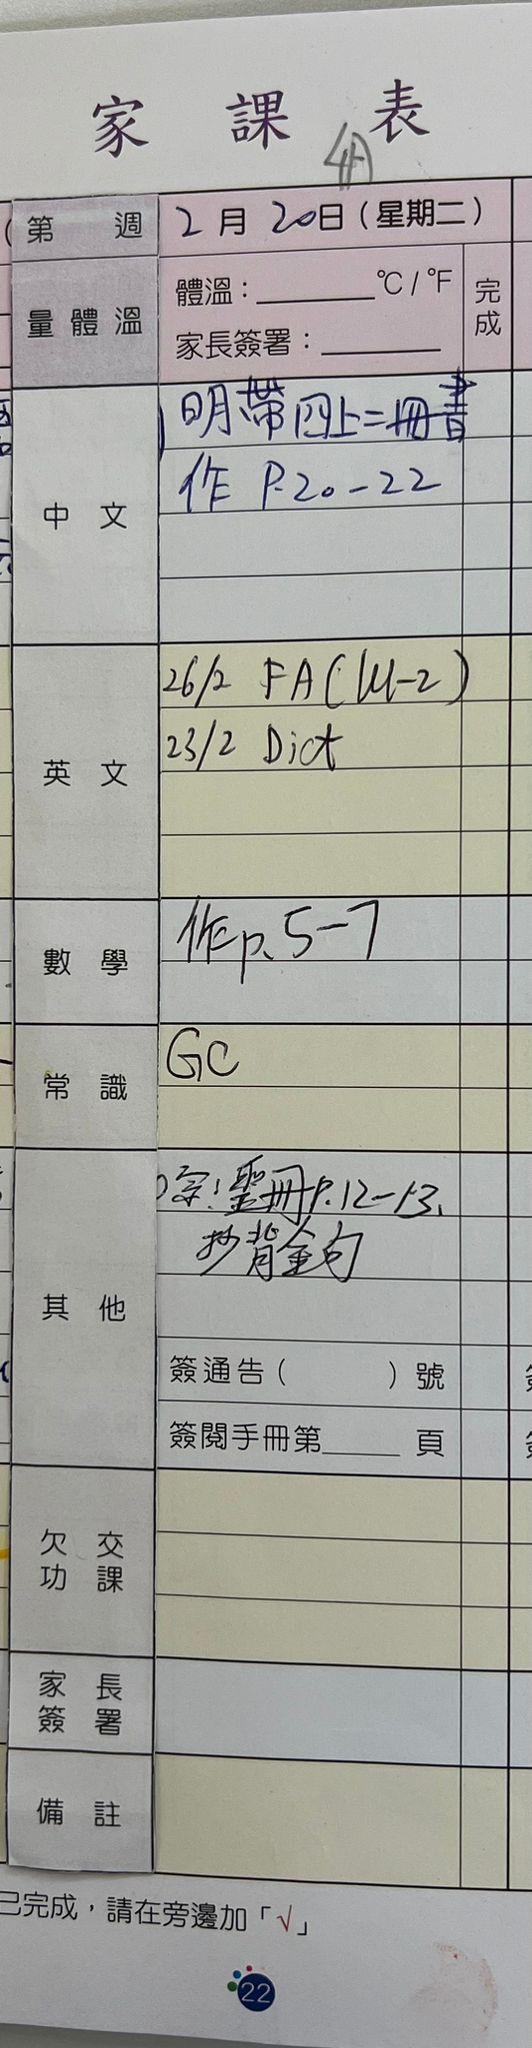 家課表
第 週 2月20日(星期二)
量體溫 體溫:______°C/°F 完成
家長簽署:______
中文 明帶四上二冊書
作 P.20-22
英文 26/2 FA (U1-2)
23/2 Dict
數學 作p.5-7
常識 GC
其他 宗:聖冊P.12-13,
抄背金句
簽通告( )號
簽閱手冊第____頁
欠交功課
家長簽署
備註
已完成,請在旁邊加「√」
22